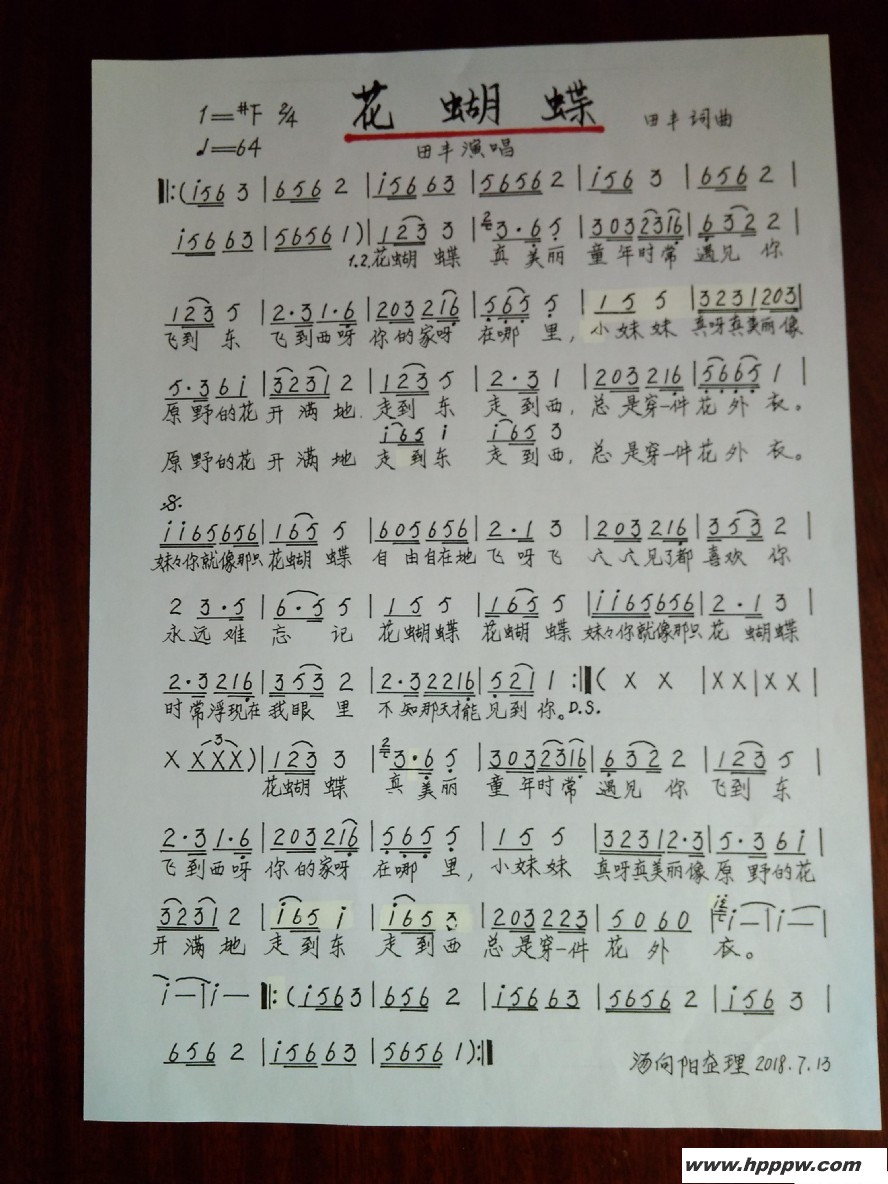 花 蝴 蝶
1=#F 2/4
田丰词曲
♩=64
田丰演唱
‖:(i56 3 | 656 2 | i56 63 | 5656 2 | i56 3 | 656 2 |
i56 63 | 5656 1) | 123 3 | 3·6 5 | 303 2316 | 632 2 |
1.2.花蝴 蝶 真 美丽 童 年时常 遇见 你
123 5 | 2·3 1·6 | 203 216 | 565 5 | 1 5 5 | 3231 203 |
飞到 东 飞到西呀 你的家呀 在哪 里，小妹妹 真呀真美丽像
5·3 6i | 3231 2 | 123 5 | 2·3 1 | 203 216 | 5665 1 |
原野的花 开满地 走到 东 走到西，总是穿一件 花外 衣。
i65 i i65 3
原野的花 开满地 走到东 走到西，总是穿一件 花外 衣。
ii65 656 | 165 5 | 605 656 | 2·1 3 | 203 216 | 353 2 |
妹々你就像那只 花蝴 蝶 自由自在地 飞呀飞 人人见了都 喜欢 你
2 3·5 | 6·5 5 | 1 5 5 | 165 5 | ii65 656 | 2·1 3 |
永远难 忘 记 花蝴蝶 花蝴 蝶 妹々你就像那只 花 蝴蝶
2·3 216 | 353 2 | 2·3 2216 | 521 1 :‖( X X | X X | X X |
时常浮现在 我眼 里 不知那天才能 见到你。D.S.
X XXX) | 123 3 | 3·6 5 | 303 2316 | 632 2 | 123 5 |
花蝴 蝶 真 美丽 童 年时常 遇见 你 飞到 东
2·3 1·6 | 203 216 | 565 5 | 1 5 5 | 3231 2·3 | 5·3 6i |
飞到西呀 你的家呀 在哪 里，小妹妹 真呀真美丽像 原野的花
3231 2 | i65 i | i65 3 | 203 223 | 50 60 | i— | i— |
开满地 走到东 走到西 总是穿一件 花外 衣。
i— | i— ‖:(i56 3 | 656 2 | i56 63 | 5656 2 | i56 3 |
656 2 | i56 63 | 5656 1):‖
汤向阳整理 2018.7.13
www.hpppw.com